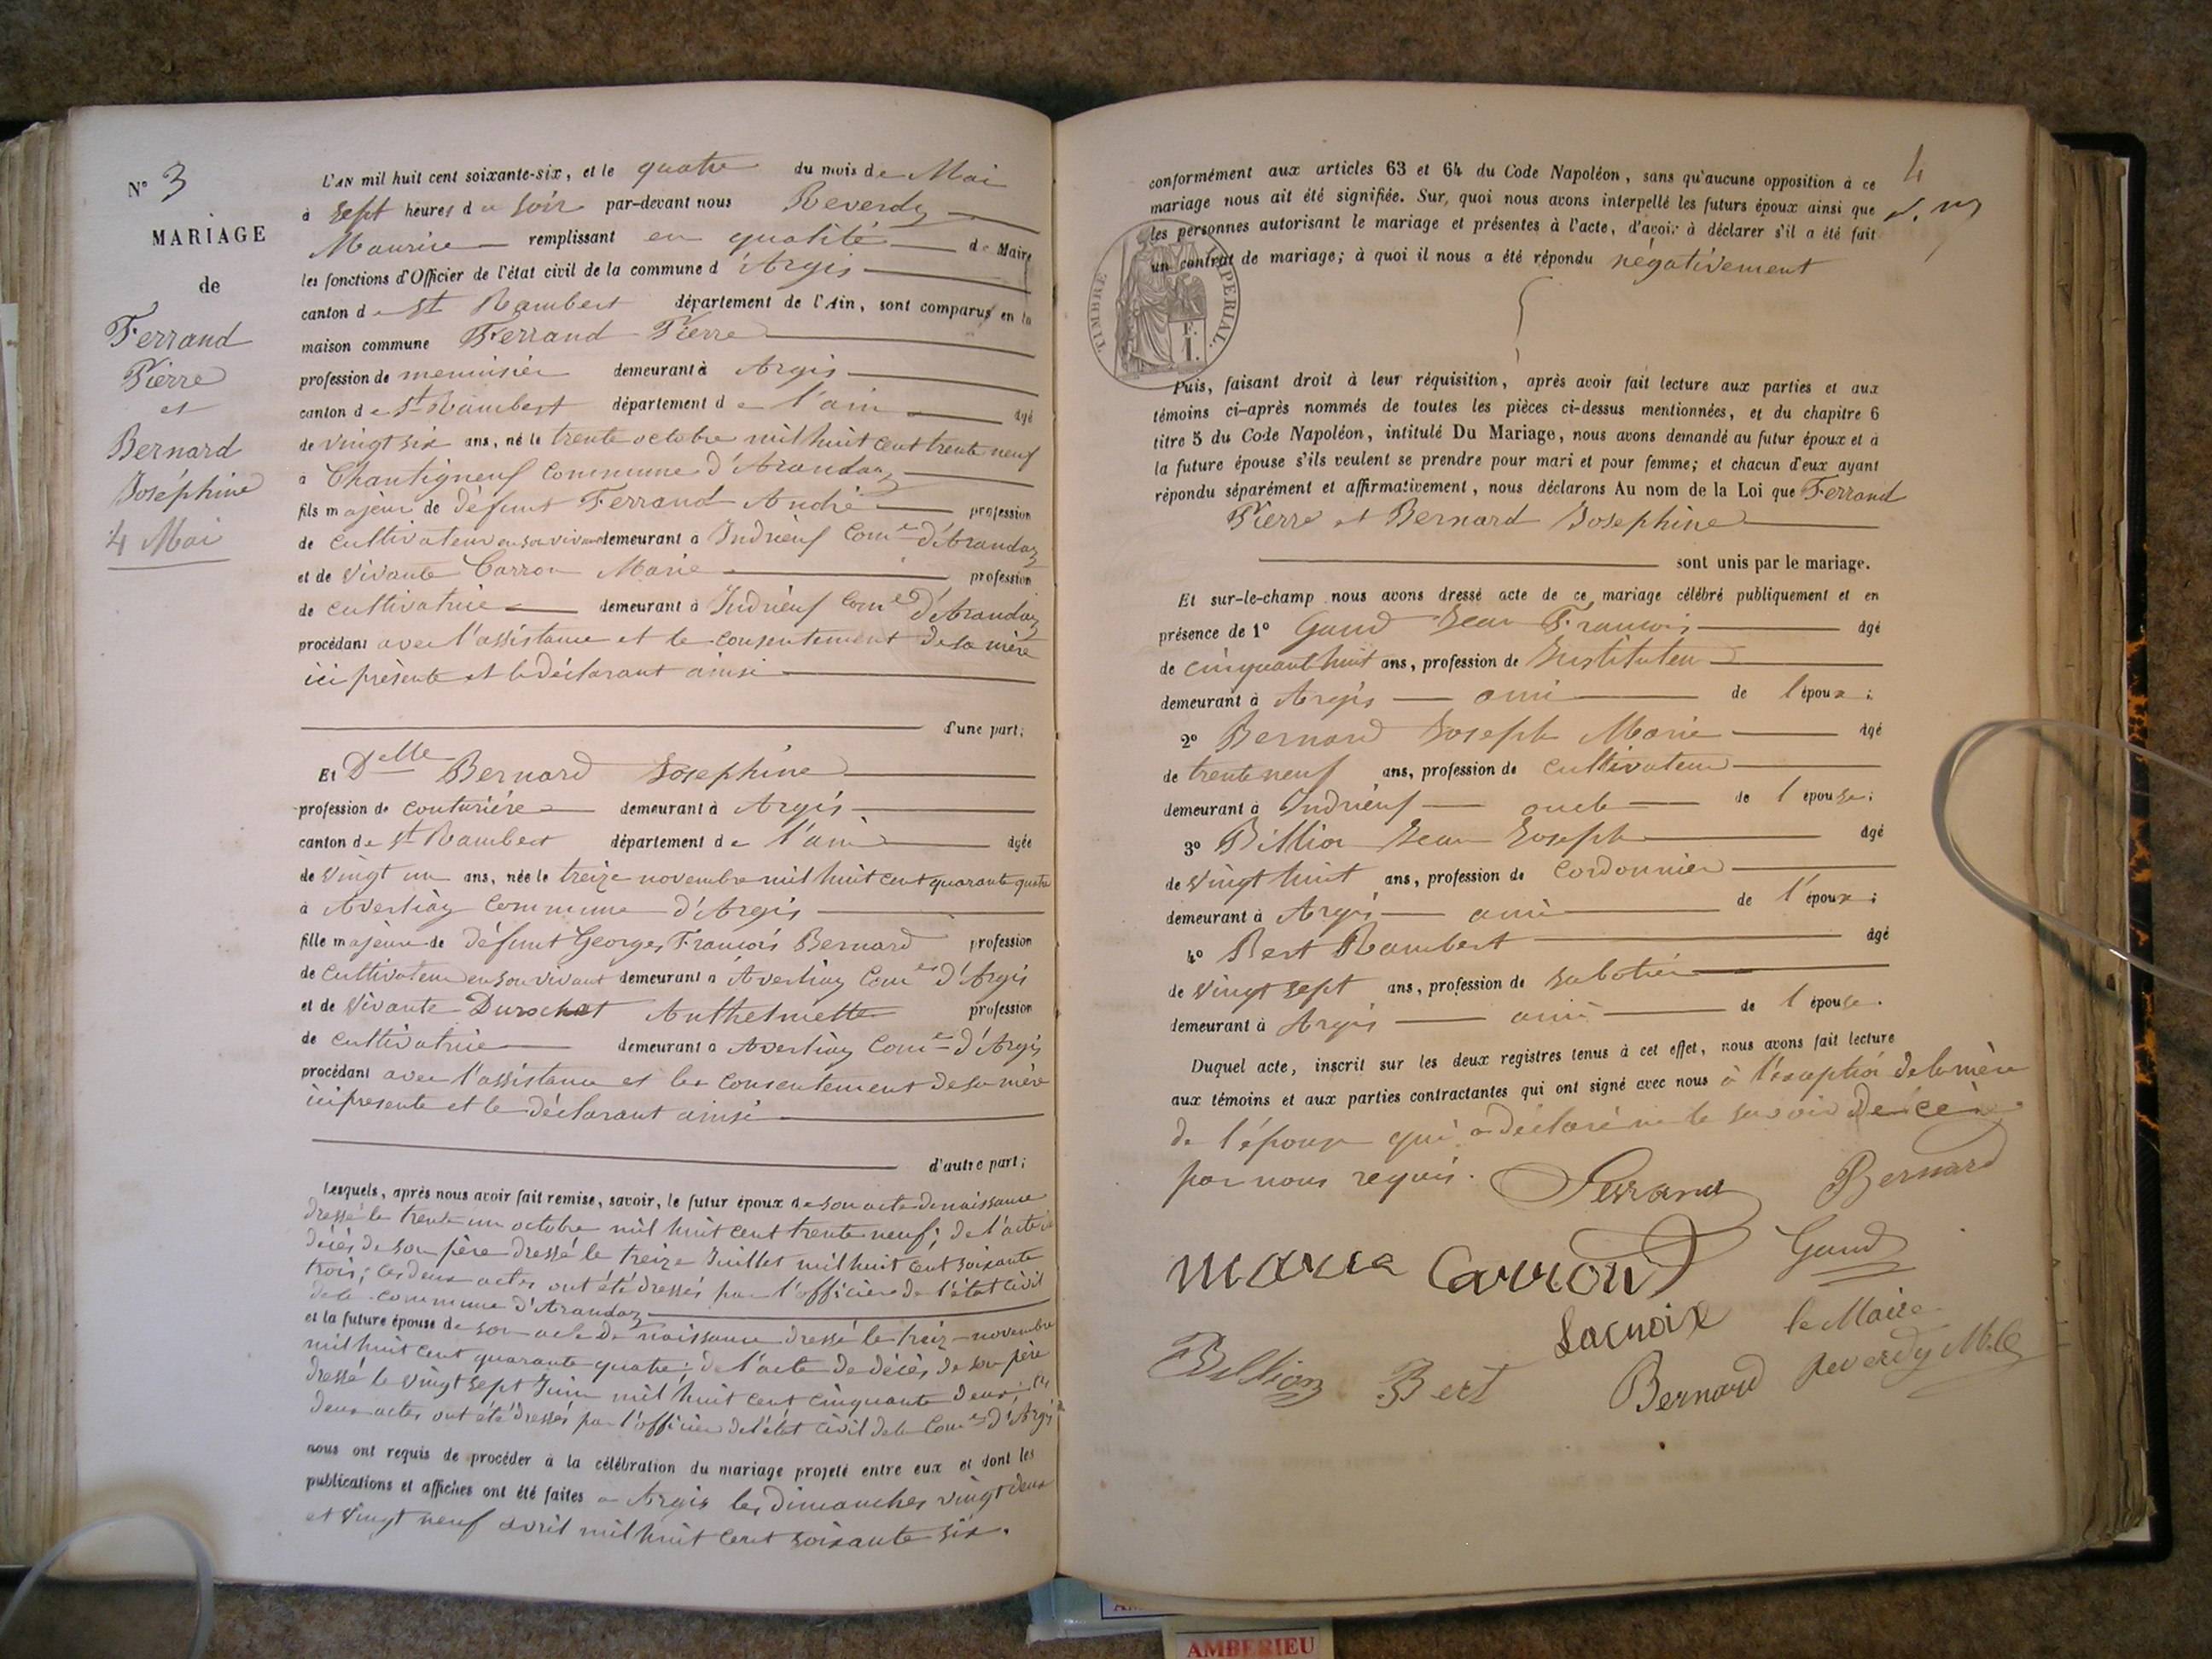 N° 3
MARIAGE
de
Ferrand
Pierre
et
Bernard
Joséphine
4 Mai
L'AN mil huit cent soixante-six, et le quatre du mois de Mai
à sept heures du soir par-devant nous Reverdy
Maurice remplissant en qualité de Maire
les fonctions d'Officier de l'état civil de la commune d'Argis
canton de St Rambert département de l'Ain, sont comparus en la
maison commune Ferrand Pierre
profession de menuisier demeurant à Argis
canton de St Rambert département de l'ain âgé
de vingt six ans, né le trente octobre mil huit cent trente neuf
à Chantigneuf commune d'Arandaz
fils majeur de défunt Ferrand André profession
de cultivateur en son vivant demeurant à Indrieuf Come d'Arandaz
et de vivante Carron Marie profession
de cultivatrice demeurant à Indrieuf Come d'Arandaz
procédant avec l'assistance et le consentement de sa mère
ici présente et le déclarant ainsi
d'une part;
Et Delle Bernard Josephine
profession de couturière demeurant à Argis
canton de St Rambert département de l'ain âgée
de vingt un ans, née le treize novembre mil huit cent quarante quatre
à Averliaz Commune d'Argis
fille majeure de défunt Georges François Bernard profession
de cultivateur en son vivant demeurant à Averliaz Come d'Argis
et de vivante Durochat Anthelmette profession
de cultivatrice demeurant à Averliaz Come d'Argis
procédant avec l'assistance et le consentement de sa mère
ici présente et le déclarant ainsi
d'autre part;
Lesquels, après nous avoir fait remise, savoir, le futur époux de son acte de naissance
dressé le trente un octobre mil huit cent trente neuf; de l'acte de
décès de son père dressé le treize Juillet mil huit cent soixante
trois; ces deux actes ont été dressés par l'officier de l'état civil
de la commune d'Arandaz
et la future épouse de son acte de naissance dressé le treize novembre
mil huit cent quarante quatre; de l'acte de décès de son père
dressé le vingt sept Juin mil huit cent cinquante deux; ces
deux actes ont été dressés par l'officier de l'état civil de la Come d'Argis
nous ont requis de procéder à la célébration du mariage projeté entre eux et dont les
publications et affiches ont été faites à Argis les dimanches vingt deux
et vingt neuf avril mil huit cent soixante six.
4
conformément aux articles 63 et 64 du Code Napoléon, sans qu'aucune opposition à ce
mariage nous ait été signifiée. Sur, quoi nous avons interpellé les futurs époux ainsi que
les personnes autorisant le mariage et présentes à l'acte, d'avoir à déclarer s'il a été fait
un contrat de mariage; à quoi il nous a été répondu négativement
TIMBRE IMPERIAL.
F.
I.
Puis, faisant droit à leur réquisition, après avoir fait lecture aux parties et aux
témoins ci-après nommés de toutes les pièces ci-dessus mentionnées, et du chapitre 6
titre 5 du Code Napoléon, intitulé Du Mariage, nous avons demandé au futur époux et à
la future épouse s'ils veulent se prendre pour mari et pour femme; et chacun d'eux ayant
répondu séparément et affirmativement, nous déclarons Au nom de la Loi que Ferrand
Pierre et Bernard Josephine
sont unis par le mariage.
Et sur-le-champ nous avons dressé acte de ce mariage célébré publiquement et en
présence de 1° Gaud Jean François âgé
de cinquante huit ans, profession de Instituteur
demeurant à Argis ami de l'époux;
2° Bernard Joseph Marie âgé
de trente neuf ans, profession de cultivateur
demeurant à Indrieuf oncle de l'épouse;
3° Billion Jean Joseph âgé
de vingt huit ans, profession de cordonnier
demeurant à Argis ami de l'époux;
4° Bert Rambert âgé
de vingt sept ans, profession de sabotier
demeurant à Argis ami de l'épouse.
Duquel acte, inscrit sur les deux registres tenus à cet effet, nous avons fait lecture
aux témoins et aux parties contractantes qui ont signé avec nous à l'exception de la mère
de l'épouse qui a déclaré ne le savoir de ce
par nous requis. Ferrand Bernard
maria Carron Gaud
Lacroix le Maire
Billion Bert Bernard Reverdy Mce
AMBERIEU